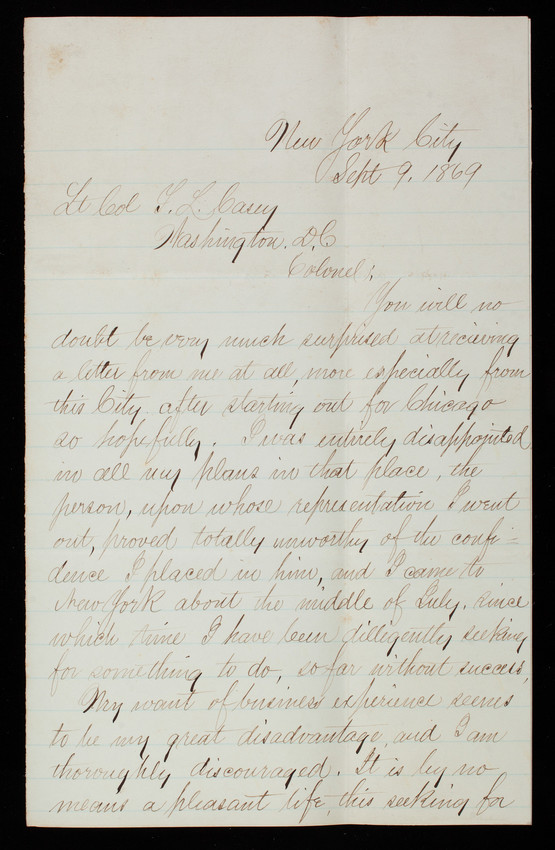 New York City
Sept 9, 1869
Lt Col T. L. Casey
Washington. D.C
Colonel;
You will no
doubt be very much surprised at recieving
a letter from me at all, more especially from
this City after starting out for Chicago
so hopefully. I was entirely disappointed
in all my plans in that place, the
person, upon whose representation I went
out, proved totally unworthy of the confi=
dence I placed in him, and I came to
New York about the middle of July. since
which time I have been dilligently seeking
for something to do, so far without success,
My want of business experience seems
to be my great disadvantage, and I am
thoroughly discouraged. It is by no
means a pleasant life, this seeking for